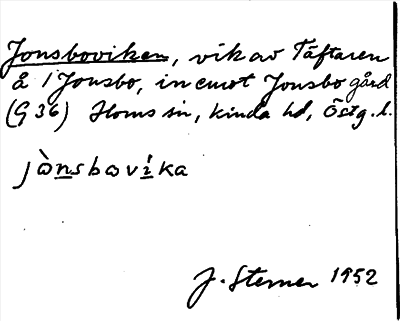 Jonsboviken, vik av Täftaren
å 1 Jonsbo, in emot Jonsbo gård
(G 36) Horns sn, Kinda hd, Östg. l.
jònsbovíka
J. Sterner 1952